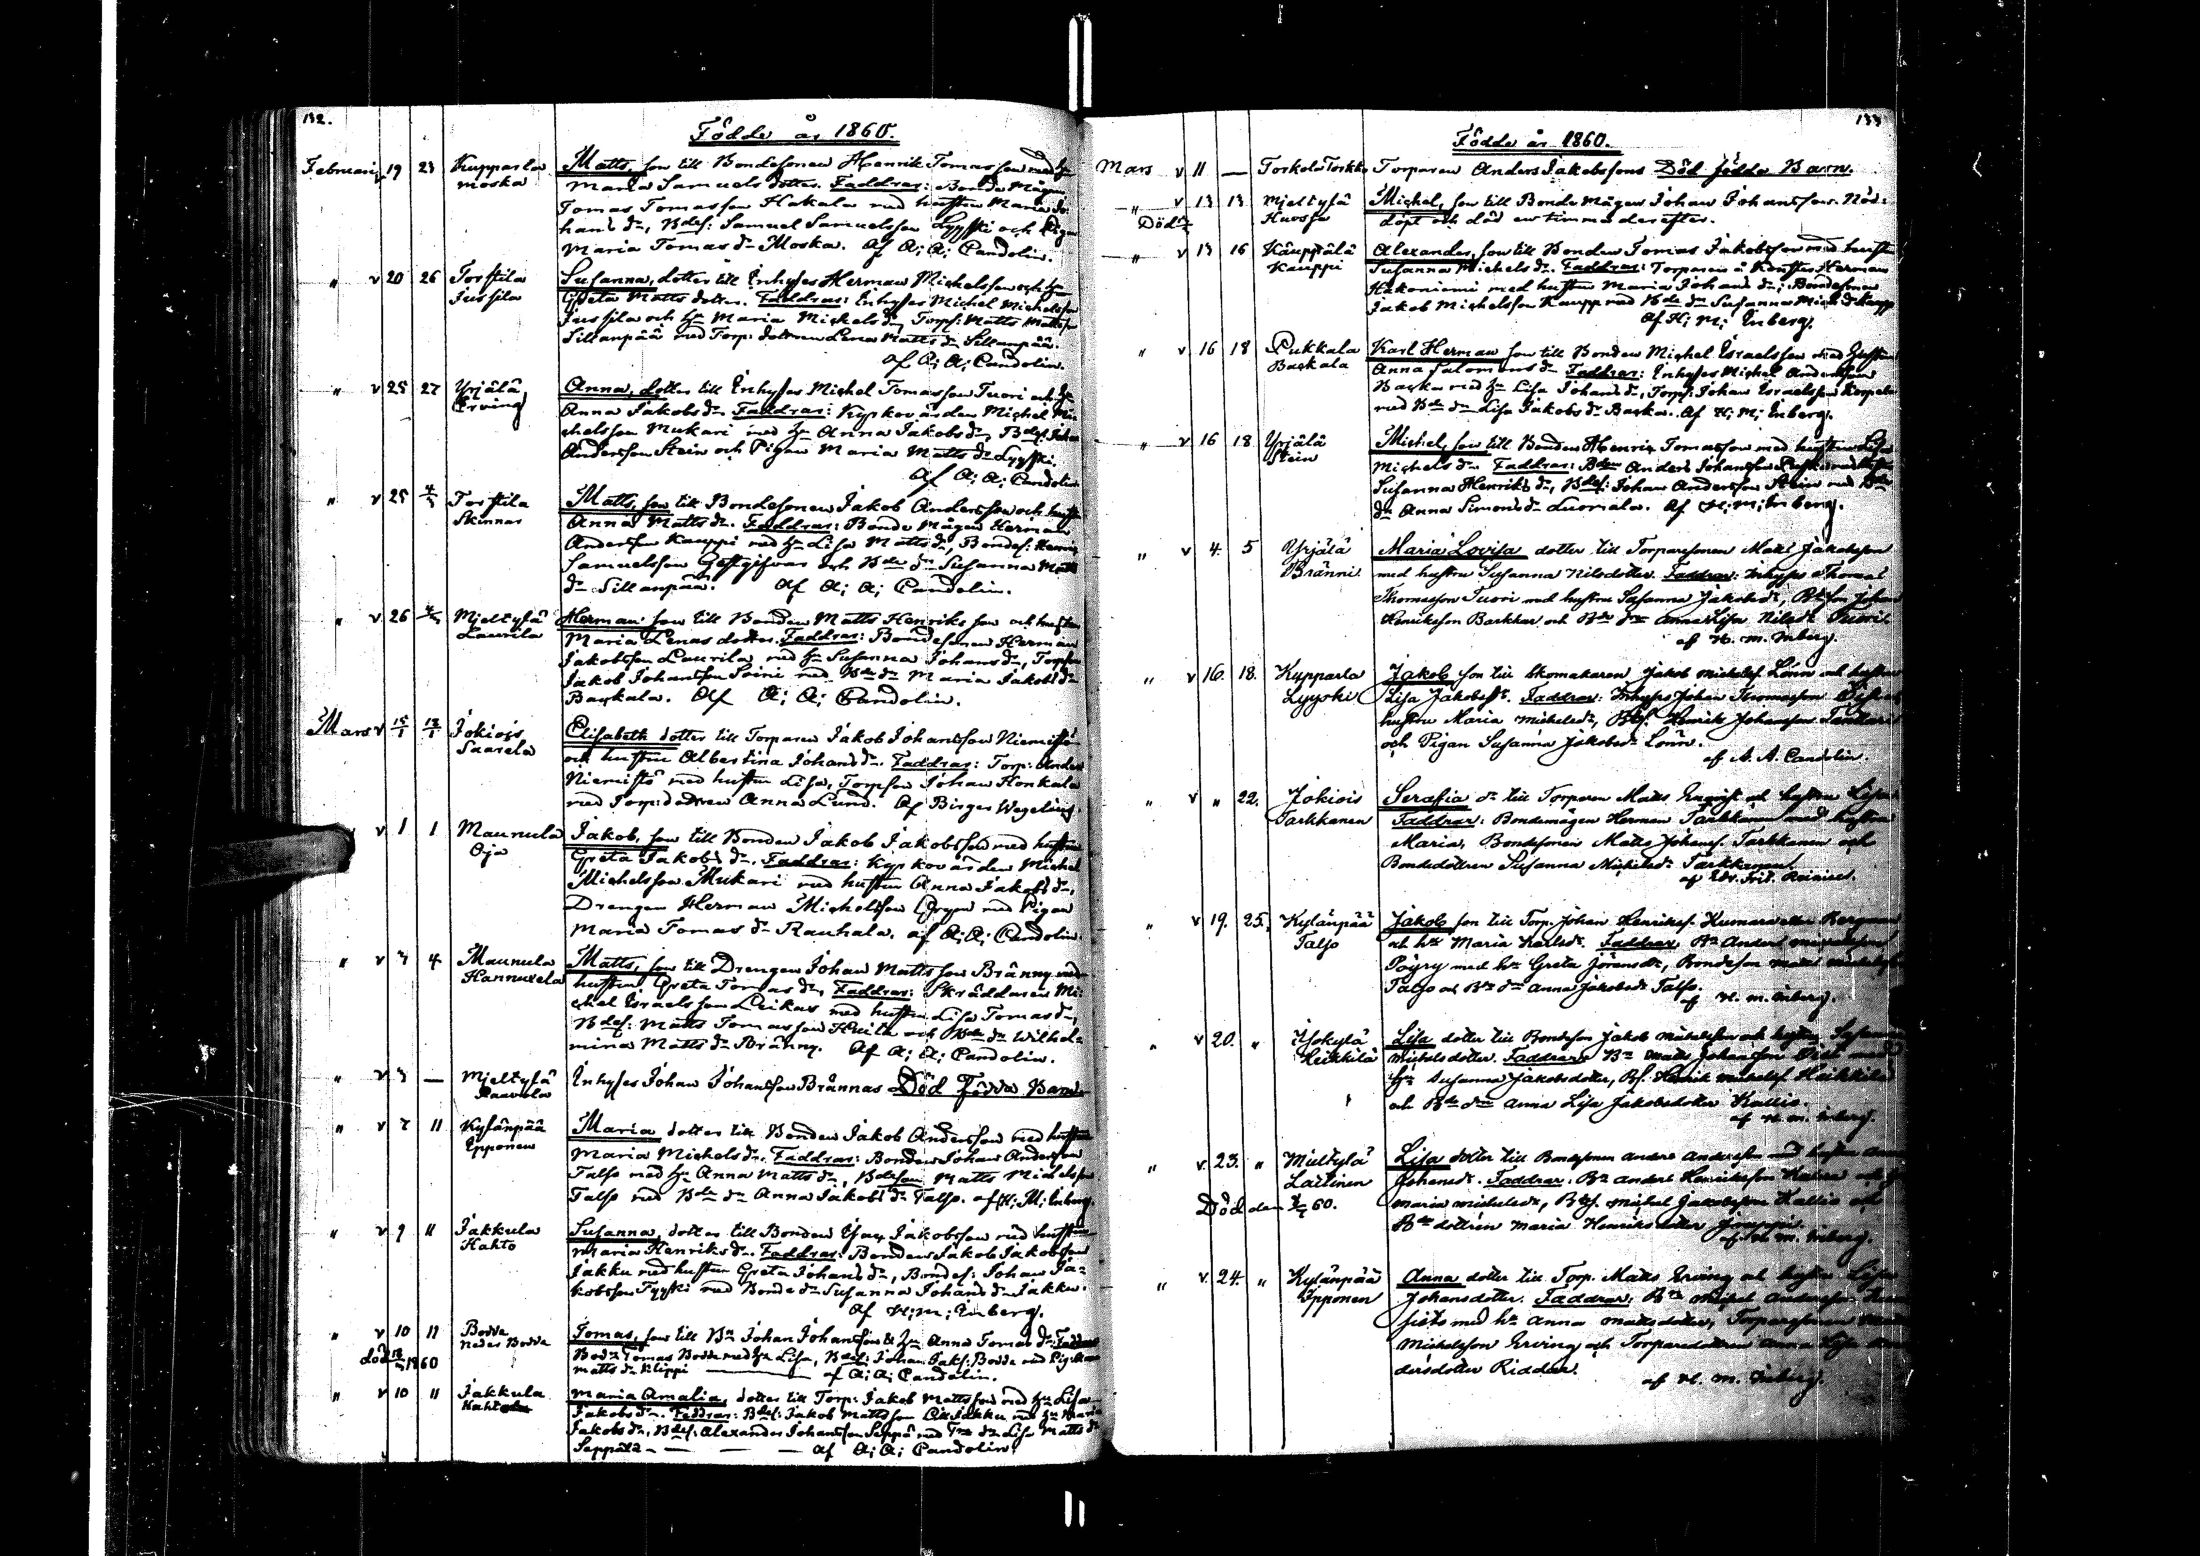 132.
Födde år 1860.
Februari v 19 23 Kupparla Moska Matts, son till Bondesonen Henrik Tomasson med h:u
Maria Samuels dotter. Faddrar: Bonde Mågen
Tomas Tomasson Hakala med hustru Maria Jo-
hans d:r, Bdes: Samuel Samuelsson Lyyski och Pigan
Maria Tomas d:r Moska. Af A; A; Candolin.
" v 20 26 Torstila Jussila Susanna, dotter till Inhyses Herman Michelsson och h:u
Greta Matts dotter. Faddrar: Inhyses Michel Michelsson
Jussila och h:u Maria Mickels d:r, Torps: Matts Mattsson
Sillanpää med Torp: dottren Lena Matts d:r Sillanpää.
af A; A; Candolin.
" v 25 27 Yrjälä Erving Anna, dotter till Inhyses Michel Tomasson Tuori och h:u
Anna Jakobs d:r. Faddrar: Kyrkovärden Michel Mi-
chelsson Mukari med h:u Anna Jakobs d:r, Bdes: Johan
Andersson Stein och Pigan Maria Matts d:r Lyyski.
af A; A; Candolin
" v 25 4/3 Torstila Skinnar Matts, son till Bondesonen Jakob Andersson och hustru
Anna Matts d:r. Faddrar: Bonde Mågen Herman
Andersson Kauppi med h:u Lisa Matts d:r, Bondes: Henrik
Samuelsson Gästgifvar och Bde d:n Susanna Matts
d:r Sillanpää. af A; A; Candolin.
" v 26 4/3 Mjeltylä Laurila Herman son till Bonden Matts Henriksson och hustru
Maria Lenas dotter. Faddrar: Bondesonen Herman
Jakobsson Laurila med h:u Susanna Johans d:r, Torpson
Jakob Johansson Soini med Bde d:n Maria Jakobs d:r
Backala. Af A; A; Candolin.
Mars v 15/1 17/1 Jokiois Saarela Elisabeth dotter till Torparen Jakob Johansson Niemistö
och hustru Albertina Johans d:r. Faddrar: Torp: Anders
Niemistö med hustru Lisa, Torpson Johan Honkala
med Torp: dottren Anna Lund. Af Birger Wegelius.
v 1 1 Maunula Oja Jakob, son till Bonden Jakob Jakobsson med hustru
Greta Jakobs d:r. Faddrar: Kyrkovärden Michel
Michelsson Mukari med hustru Anna Jakobs d:r,
Drengen Herman Michelsson med Pigan
Maria Tomas d:r Rauhala. af A; A; Candolin.
" v 3 4 Maunula Hannuxela Matts, son till Drengen Johan Mattsson Bränny med
hustru Greta Tomas d:r. Faddrar: Skräddaren Mi-
chel Israelsson Leikas med hustru Lisa Tomas d:r,
Bdes: Matts Tomasson och Bde d:n Wilhel-
mina Matts d:r Bränny. Af A; A; Candolin.
" v 3 — Mjeltylä Inhyses Johan Johansson Brännas Död Födde Barn
" v 7 11 Kylänpää Ypponen Maria dotter till Bonden Jakob Andersson med hustru
Maria Michels d:r. Faddrar: Bonden Johan Andersson
Talso med h:u Anna Matts d:r, Bdeson Matts Michelsson
Talso med Bde d:n Anna Jakobs d:r Talso. af H; M; Inberg.
" v 9 11 Jakkula Kahto Susanna, dotter till Bonden Jakobsson med hustru
Maria Henriks d:r. Faddrar: Bonden Jakob Jakobsson
Jakku med hustru Greta Johans d:r, Bondes: Johan Ja-
kobsson Tyyski med Bonde d:n Susanna Johans d:r Jakku.
Af H; M; Inberg.
" v 10 11 Bodde Neder Bodde Tomas, son till B:n Johan Johansson & h:u Anna Tomas d:r. Faddrar
1860 Tomas Bodde med h:u Lisa, Bdes: Johan Jaks: Bodde med Pig:
Matts d:r Klippi — af A; A; Candolin.
" v 10 11 Jakkula Maria Amalia, dotter till Torp: Jakob Mattsson med h:u Lisa
Jakobs d:r. Faddrar: Bdes: Jakob Mattsson Jakku med h:u Maria
Jakobs d:r, Bdes. Alexander Johansson Seppä med d:n Lisa Matts d:r
Seppälä — — — af A; A; Candolin.
133
Födde år 1860.
Mars v 11 — Torkola Torkko Torparen Anders Jakobssons Död födde Barn.
" v 13 13 Mjeltylä Huossa Michel, son till Bonde Mågen Johan Johansson. Nöd-
Död döpt och död en timme derefter.
" v 13 16 Kauppälä Kauppi Alexander, son till Bonden Tomas Jakobsson med hustru
Susanna Michels d:r. Faddrar: Torparen Herman
Hakoniemi med hustru Maria Johans d:r; Bondesonen
Jakob Michelsson Kaupp med Bde d:n Susanna Mich: d:r Kaupp
Af H; M; Inberg.
" v 16 18 Pukkala Backala Karl Herman son till Bonden Michel Israelsson med hustru
Anna Salomons d:r. Faddrar: Inhyses Michel Andersson
Backa med h:u Lisa Johans d:r, Torps: Johan Israelsson Korpela
med Bde d:n Lisa Jakobs d:r Backa. Af H; M; Inberg.
" v 16 18 Yrjälä Stein Michel, son till Bonden Henrik Tomasson med hustru Lisa
Michels d:r. Faddrar: Bden Anders Johansson med hustru
Susanna Henriks d:r, Bdes: Johan Andersson Stein med Bde
d:n Anna Simons d:r Luomala. Af H; M; Inberg.
" v 4. 5 Yrjälä Bränni Maria Lovisa dotter till Torparesonen Matts Jakobsson
med hustru Susanna Nilsdotter. Faddrar: Inhyses Thomas
Thomasson Tuori med hustru Susanna Jakobsdr, Bdeson Johan
Henriksson Barkkar och Bde d:n Anna Lisa Nilsdr Tuori.
af H. M. Inberg.
" v 16. 18. Kypparla Lyyski Jakob son till Skomakaren Jakob Michelss. Lönn och hustru
Lisa Jakobsdr. Faddrar: Inhyses Johan Thomasson
hustru Maria Michelsdr, Bds. Henrik Johansson
och Pigan Susanna Jakobsdr Lönn.
af A. A. Candolin.
" v " 22. Jokiois Tarkkanen Serafia d:r till Torparen Matts och hustru Lisa
Faddrar: Bondemågen Herman Tarkkanen med hustru
Maria, Bondesonen Matts Johanss. Tarkkanen och
Bondedottren Susanna Michelsdr Tarkkanen.
" v 19. 25. Kylänpää Talso Jakob son till Torp. Johan Henrikss. Kumara eller Bergman
och h:u Maria Karlsdr. Faddrar, B:n Anders
Pöyry med h:u Greta Jöransdr, Bondeson Matts
Talso och Bde d:n Anna Jakobsdr Talso.
af H. M. Inberg.
" v 20. " Isokylä Heikkilä Lisa dotter till Bondeson Jakob Michelsson och hustru
Michelsdotter. Faddrar B:n Matts Johansson
h:u Susanna Jakobsdotter, Bs. Henrik Michelss. Heikkilä
och Bde d:n Anna Lisa Jakobsdotter Kallio.
af H. M. Inberg.
" v. 23. " Mieltylä Laitinen Lisa dotter till Bondesonen Anders Andersson med hustru Anna
Johansdr. Faddrar: B:n Anders Henriksson
Död den 60. Maria Michelsdr, Bds. Michel Jakobsson Kallio och
Bde dottren Maria Henriksdotter
af H. M. Inberg.
" v. 24. " Kylänpää Ypponen Anna dotter till Torp. Matts Erving och hustru Lisa
Johansdotter. Faddrar: B:n Michel Andersson
med h:u Anna Mattsdotter, Torparesonen
Michelsson Erving och Torparedottren Anna Lisa An-
dersdotter Riddar.
af H. M. Inberg.